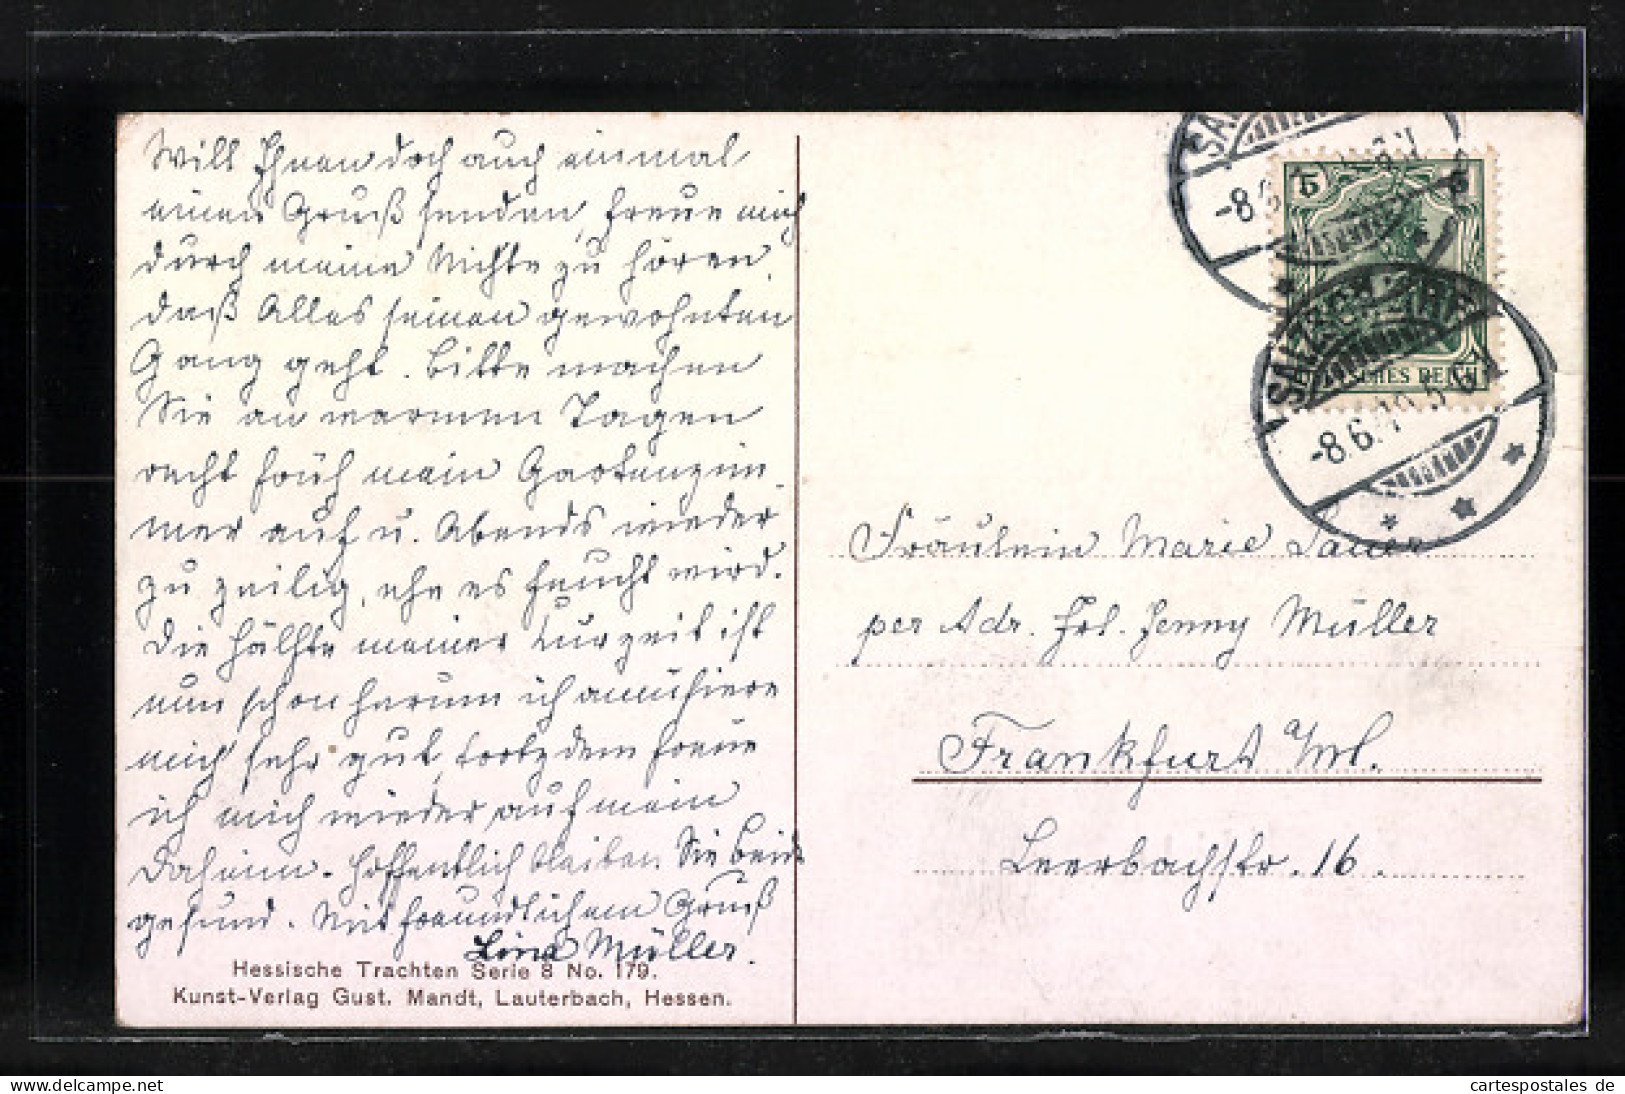 Will Ihnen doch auch einmal
einen Gruß senden, freue mich
durch meine Nichte zu hören,
daß Alles seinen gewohnten
Gang geht. Bitte machen
Sie an warmen Tagen
recht früh mein Gartenzim-
mer auf u. Abends wieder
zu zeitig, ehe es feucht wird.
Die Hälfte meiner Kurzeit ist
nun schon herum ich amüsiere
mich sehr gut, trotzdem freue
ich mich wieder auf mein
Daheim. Hoffentlich bleiben Sie beide
gesund. Mit freundlichem Gruß
Lina Müller.
Hessische Trachten Serie 8 No. 179.
Kunst-Verlag Gust. Mandt, Lauterbach, Hessen.
5 5
DEUTSCHES REICH
SALZSCHLIRF
-8.6.10.5-6N
Fräulein Marie Sauer
per Adr. Frl. Jenny Müller
Frankfurt a/M.
Leerbachstr. 16.
cartespostales de